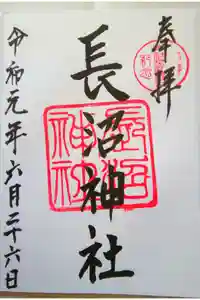 奉拝
長沼神社
令和元年六月二十六日
長沼
神社